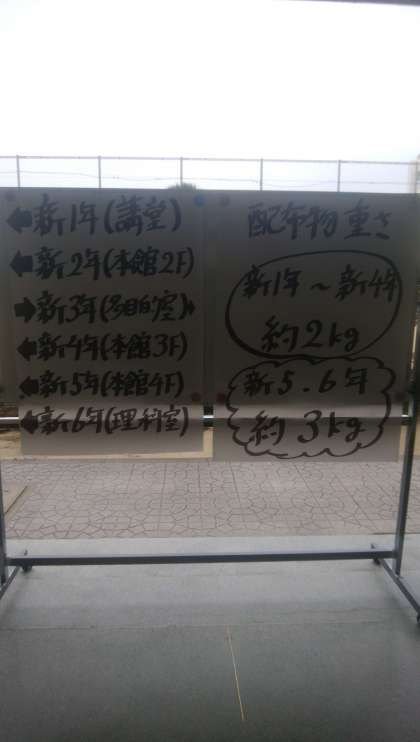 ←新1年(講堂)
←新2年(本館2F)
→新3年(多目的室)
←新4年(本館3F)
←新5年(本館4F)
←新6年(理科室)
配布物重さ
新1年～新4年
約2kg
新5.6年
約3kg